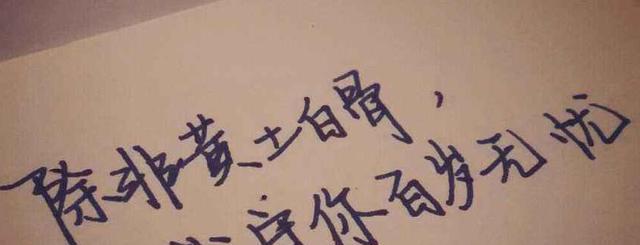 除非黄土白骨,
守你百岁无忧